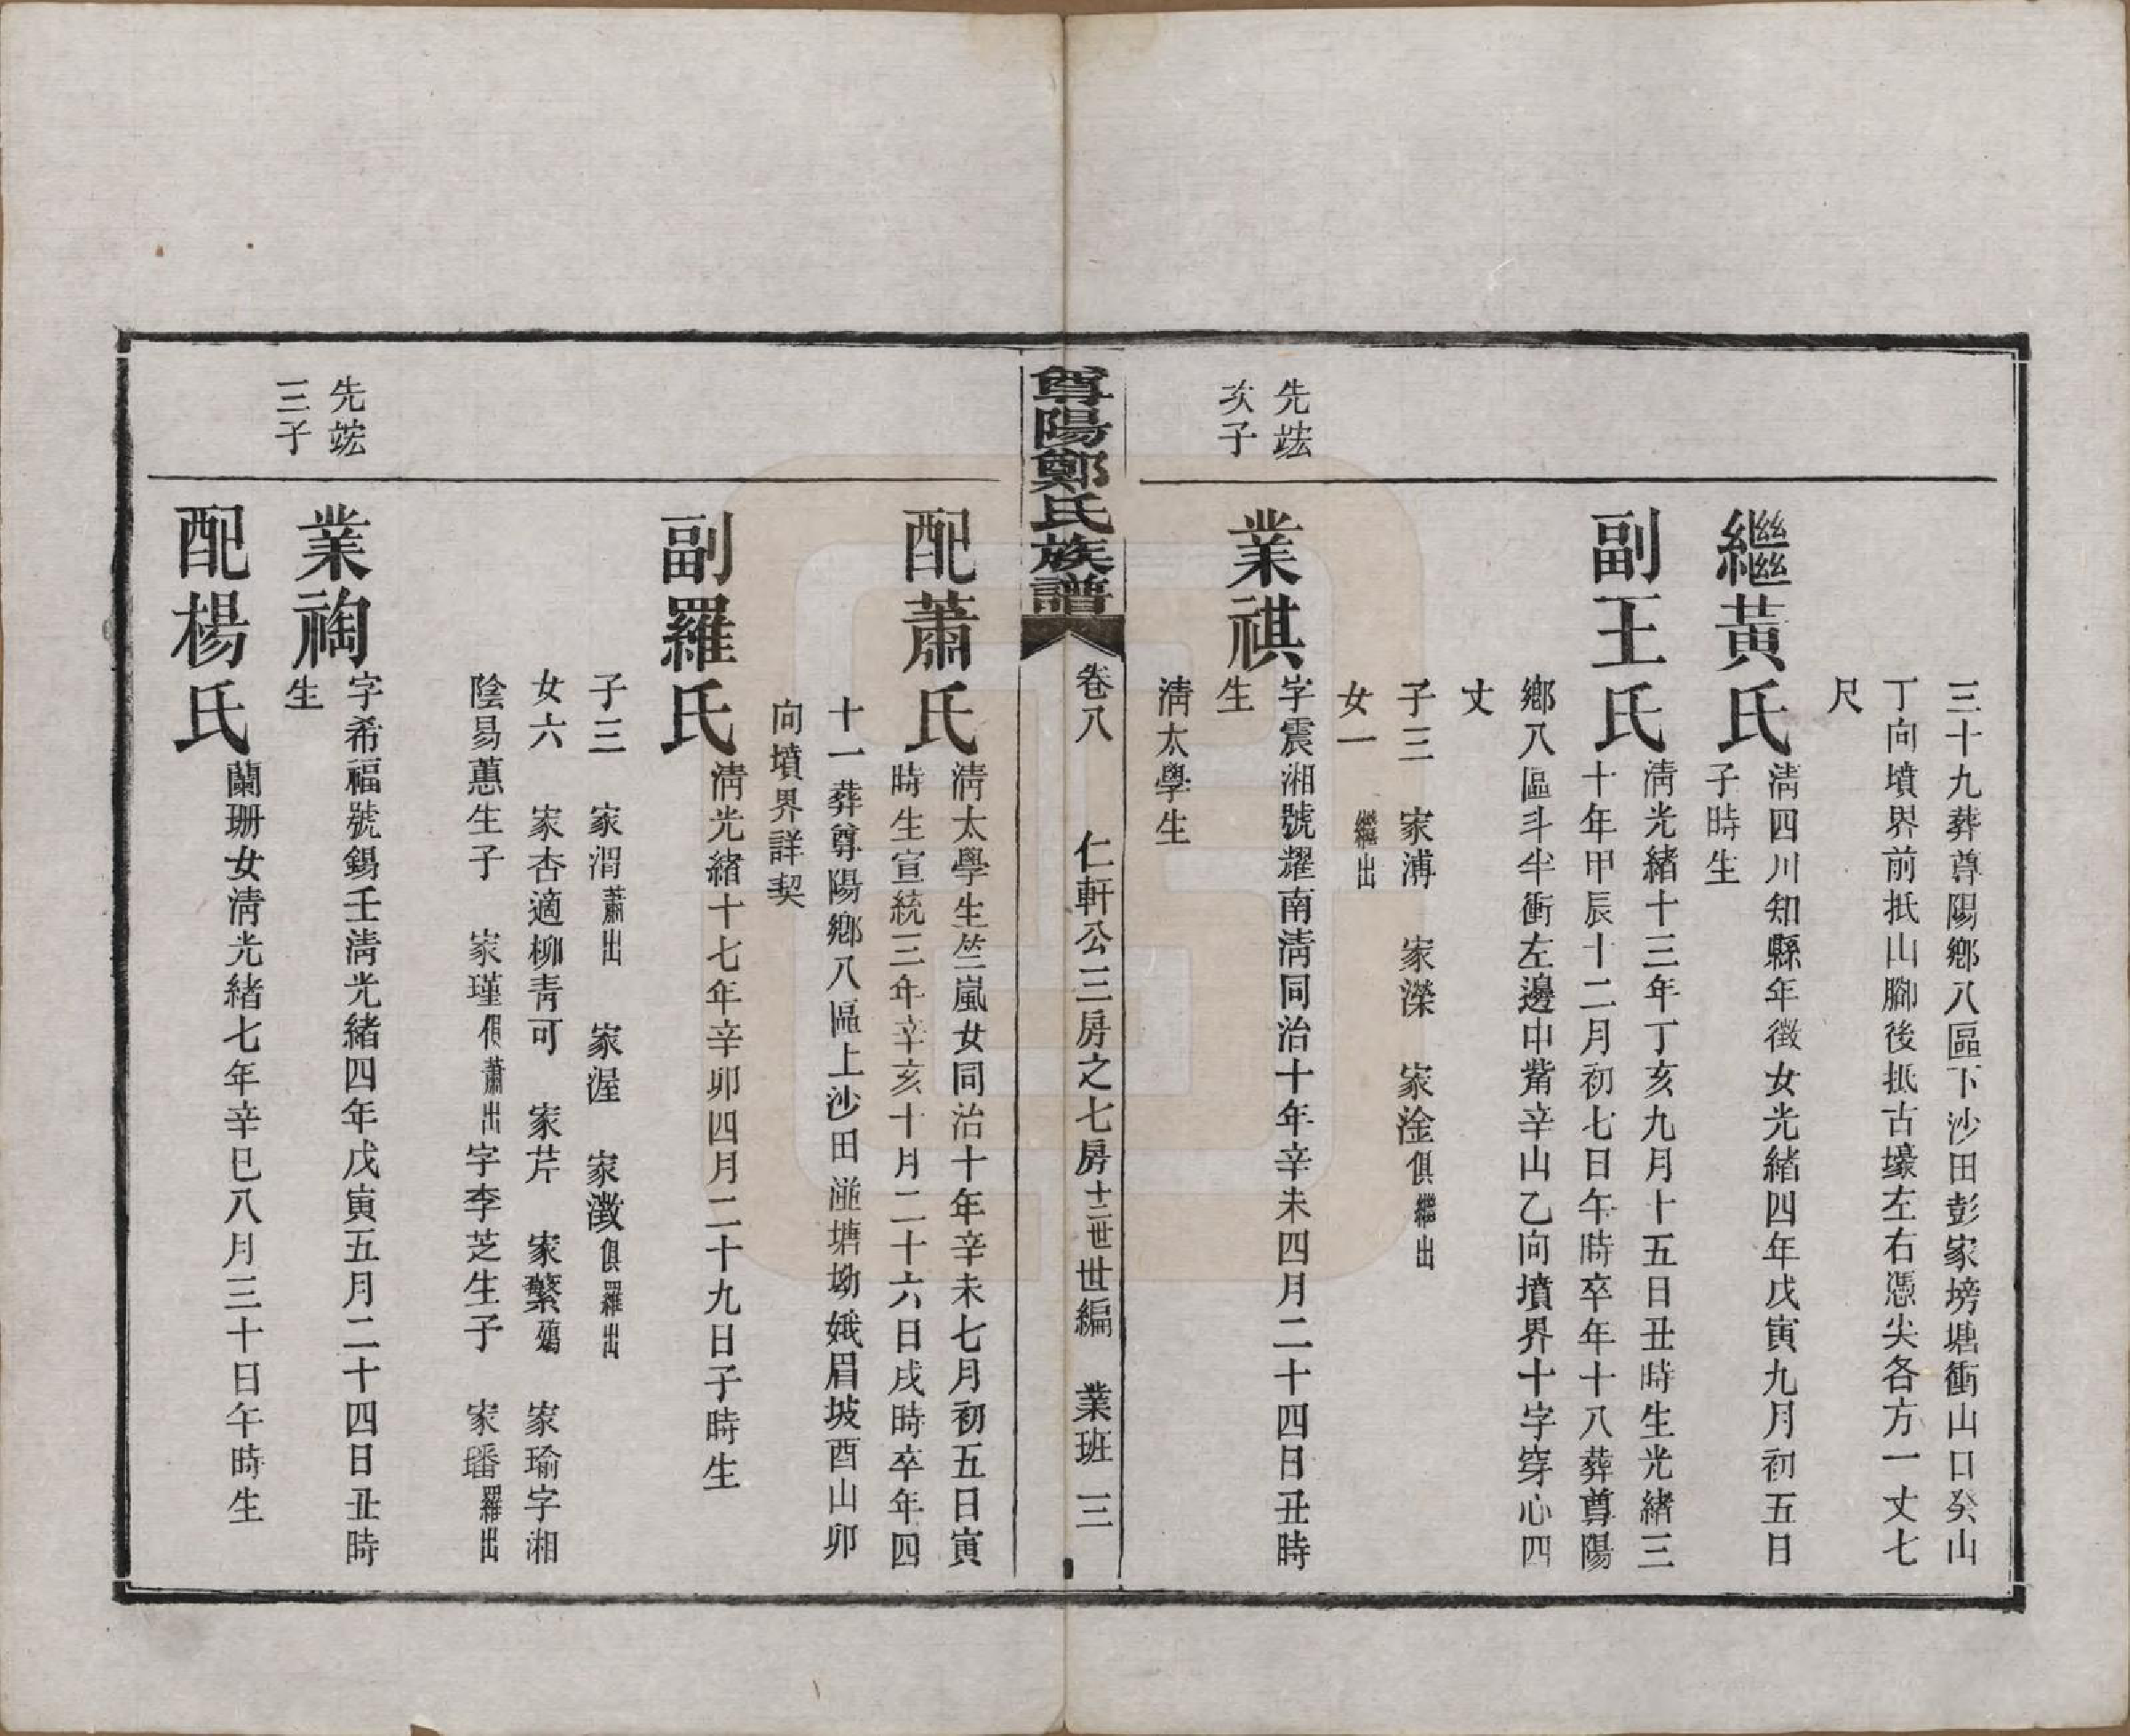 三十九葬尊陽鄉八區下沙田彭家塝塘衝山口癸山
丁向墳界前抵山腳後抵古壕左右憑尖各方一丈七
尺
繼黃氏
清四川知縣年徵女光緒四年戊寅九月初五日
子時生
副王氏
清光緒十三年丁亥九月十五日丑時生光緒三
十年甲辰十二月初七日午時卒年十八葬尊陽
鄉八區斗半衝左邊中觜辛山乙向墳界十字穿心四
丈
子三 家溥 家濚 家淦俱繼出
女一 繼出
先竤
次子
業祺
字震湘號耀南清同治十年辛未四月二十四日丑時
生
清太學生
尊陽鄭氏族譜
卷八 仁軒公三房之七房十二世世編 業班 三
配蕭氏
清太學生竺嵐女同治十年辛未七月初五日寅
時生宣統三年辛亥十月二十六日戌時卒年四
十一葬尊陽鄉八區上沙田湴塘坳娥眉坡酉山卯
向墳界詳契
副羅氏
清光緒十七年辛卯四月二十九日子時生
子三 家渭蕭出 家渥 家澂俱羅出
女六 家杏適柳青可 家芹 家蘩殤 家瑜字湘
陰易蕙生子 家瑾俱蕭出字李芝生子 家璠羅出
先竤
三子
業祹
字希福號錫壬清光緒四年戊寅五月二十四日丑時
生
配楊氏
蘭珊女清光緒七年辛巳八月三十日午時生